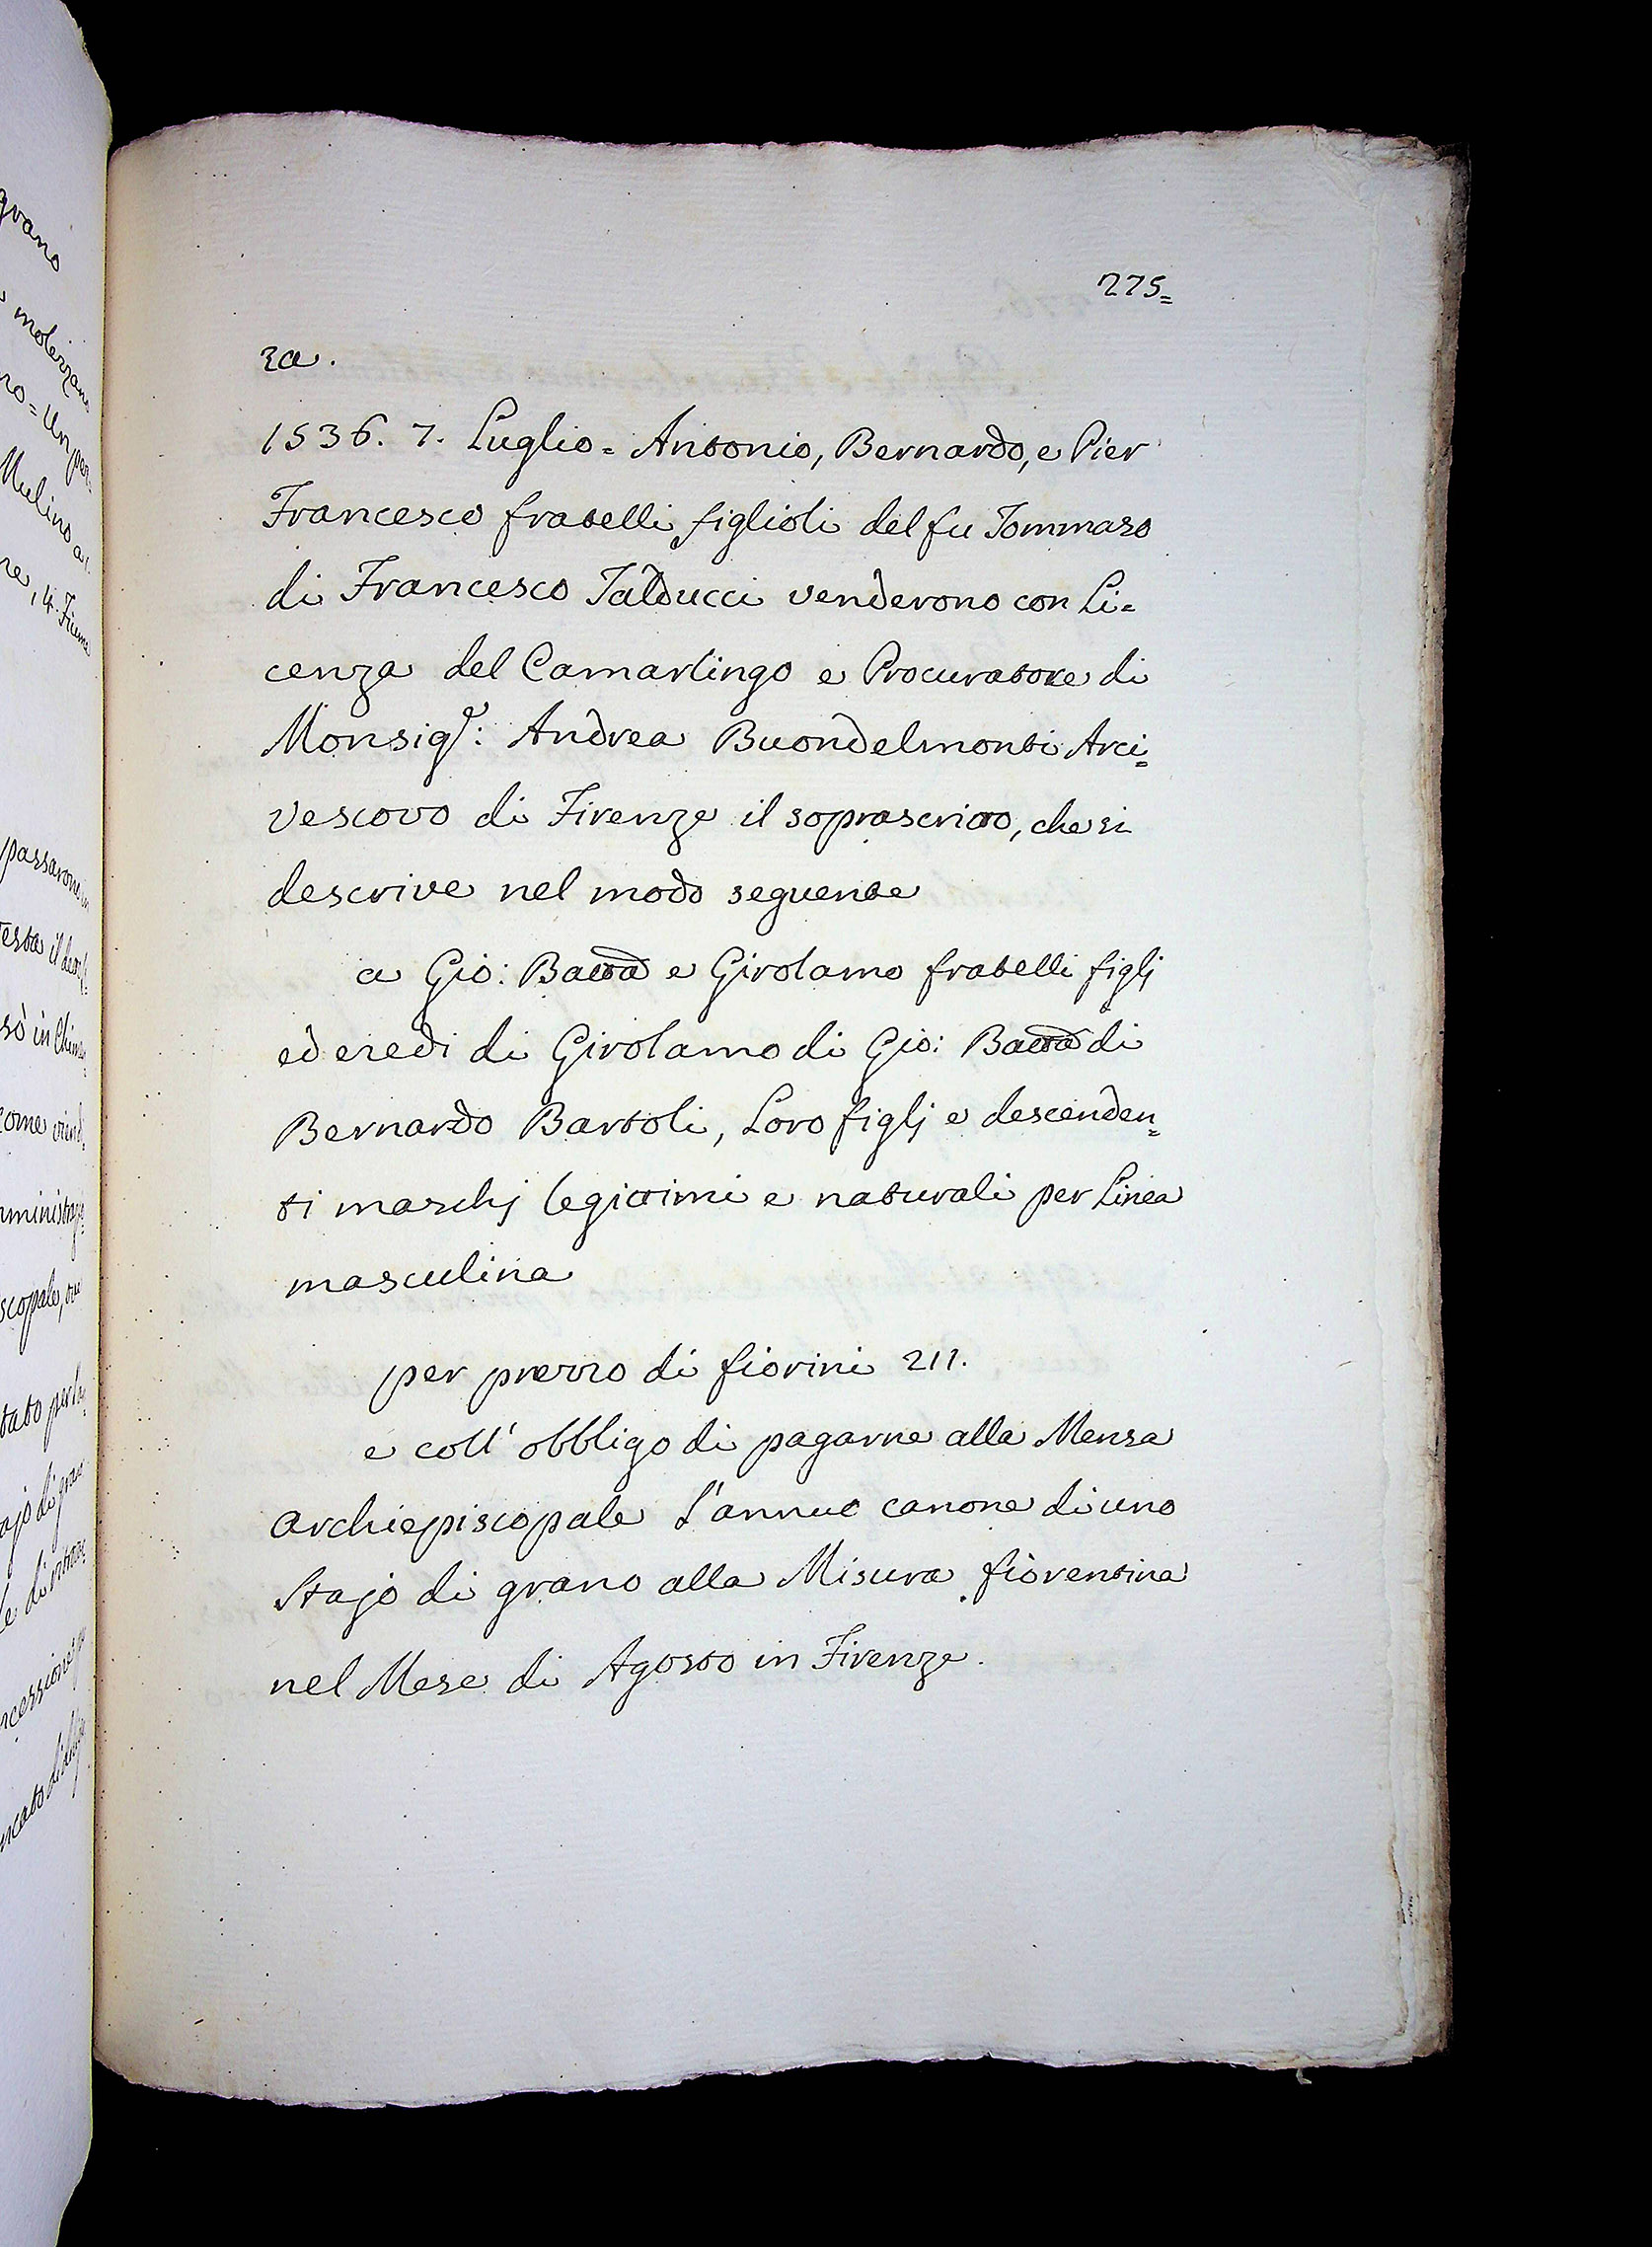 275=
za.
1536. 7. Luglio = Antonio, Bernardo, e Pier
Francesco fratelli figlioli del fu Tommaso
di Francesco Talducci venderono con Li=
cenza del Camarlingo e Procuratore di
Monsigr: Andrea Buondelmonti Arci=
vescovo di Firenze il soprascritto, che si
descrive nel modo seguente
a Gio: Batta e Girolamo fratelli figlj
ed eredi di Girolamo di Gio: Batta di
Bernardo Bartoli, Loro figlj e descenden=
ti maschj legittimi e naturali per Linea
masculina
per prezzo di fiorini 211.
e coll' obbligo di pagarne alla Mensa
Archiepiscopale L'annuo canone di uno
Stajo di grano alla Misura fiorentina
nel Mese di Agosto in Firenze.